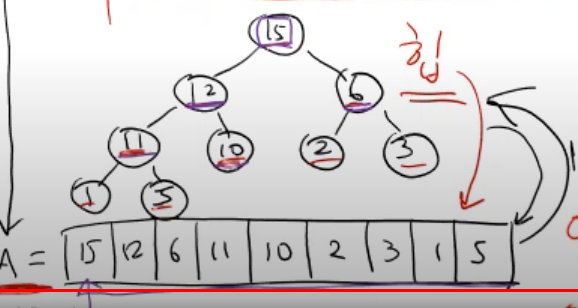 15
12 6
11 10 2 3
1 5
A = 15 12 6 11 10 2 3 1 5